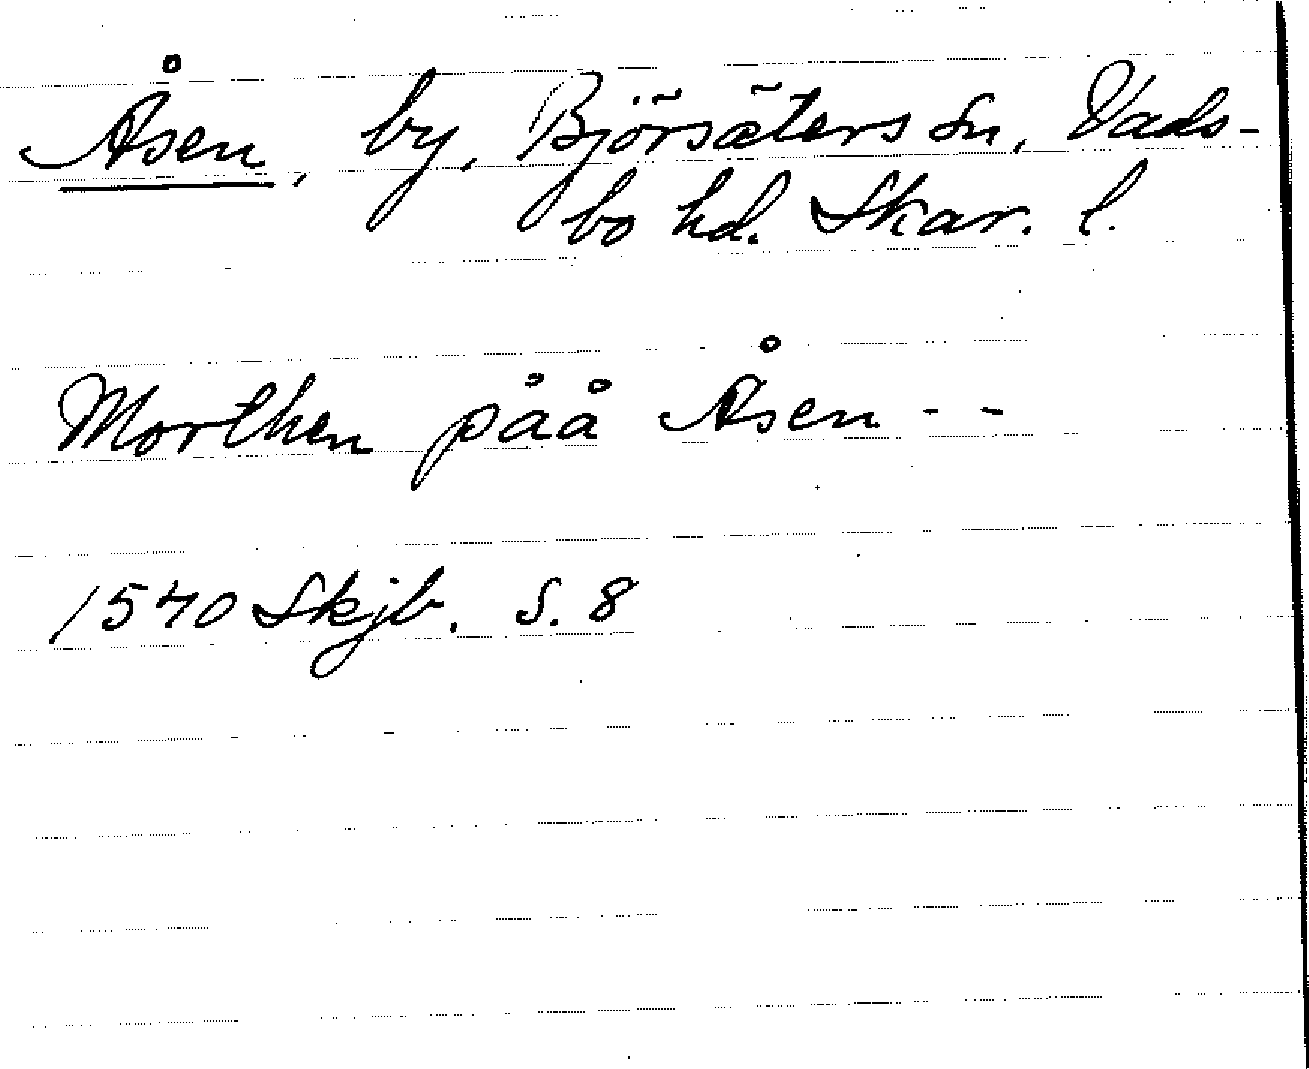 Åsen, by, Björsäters sn, Vads-
bo hd. Skar. l.
Morthen påå Åsen - -
1540 Skjb. S. 8